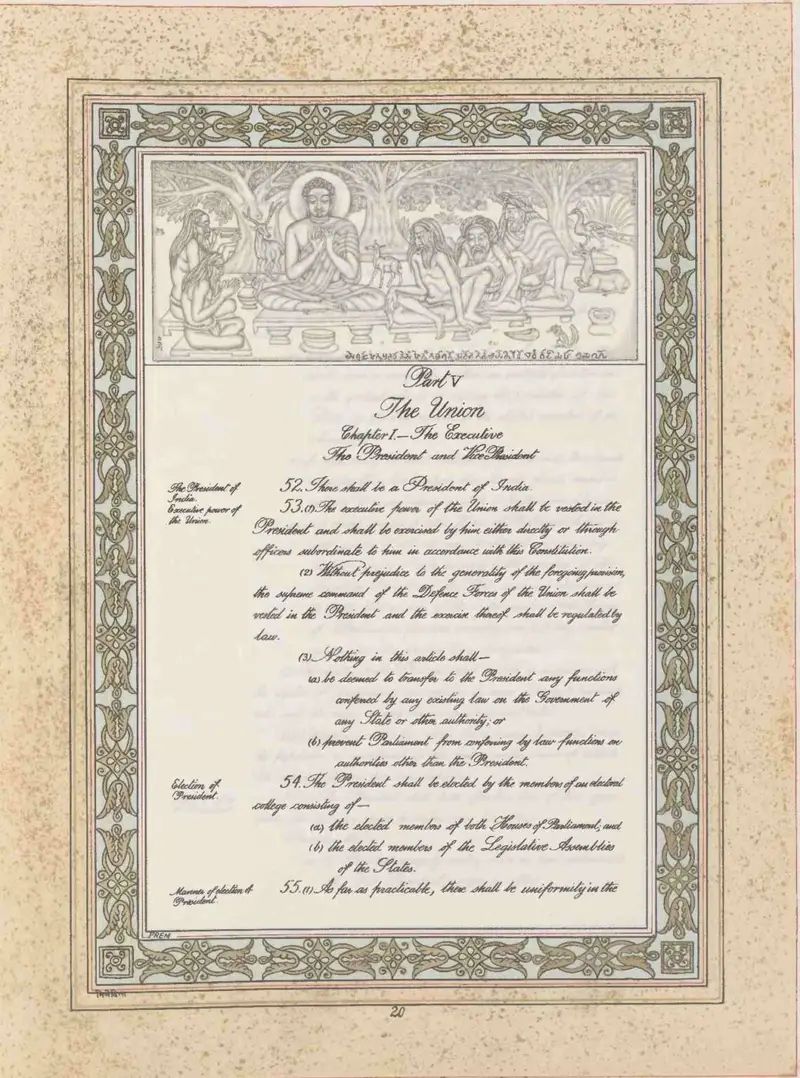 Part V
The Union
Chapter I.—The Executive
The President and Vice-President
The President of
India.
52. There shall be a President of India.
Executive power of
the Union.
53. (1) The executive power of the Union shall be vested in the
President and shall be exercised by him either directly or through
officers subordinate to him in accordance with this Constitution.
(2) Without prejudice to the generality of the foregoing provision,
the supreme command of the Defence Forces of the Union shall be
vested in the President and the exercise thereof shall be regulated by
law.
(3) Nothing in this article shall—
(a) be deemed to transfer to the President any functions
conferred by any existing law on the Government of
any State or other authority; or
(b) prevent Parliament from conferring by law functions on
authorities other than the President.
Election of
President.
54. The President shall be elected by the members of an electoral
college consisting of—
(a) the elected members of both Houses of Parliament; and
(b) the elected members of the Legislative Assemblies
of the States.
Manner of election of
President.
55. (1) As far as practicable, there shall be uniformity in the
PREM
20